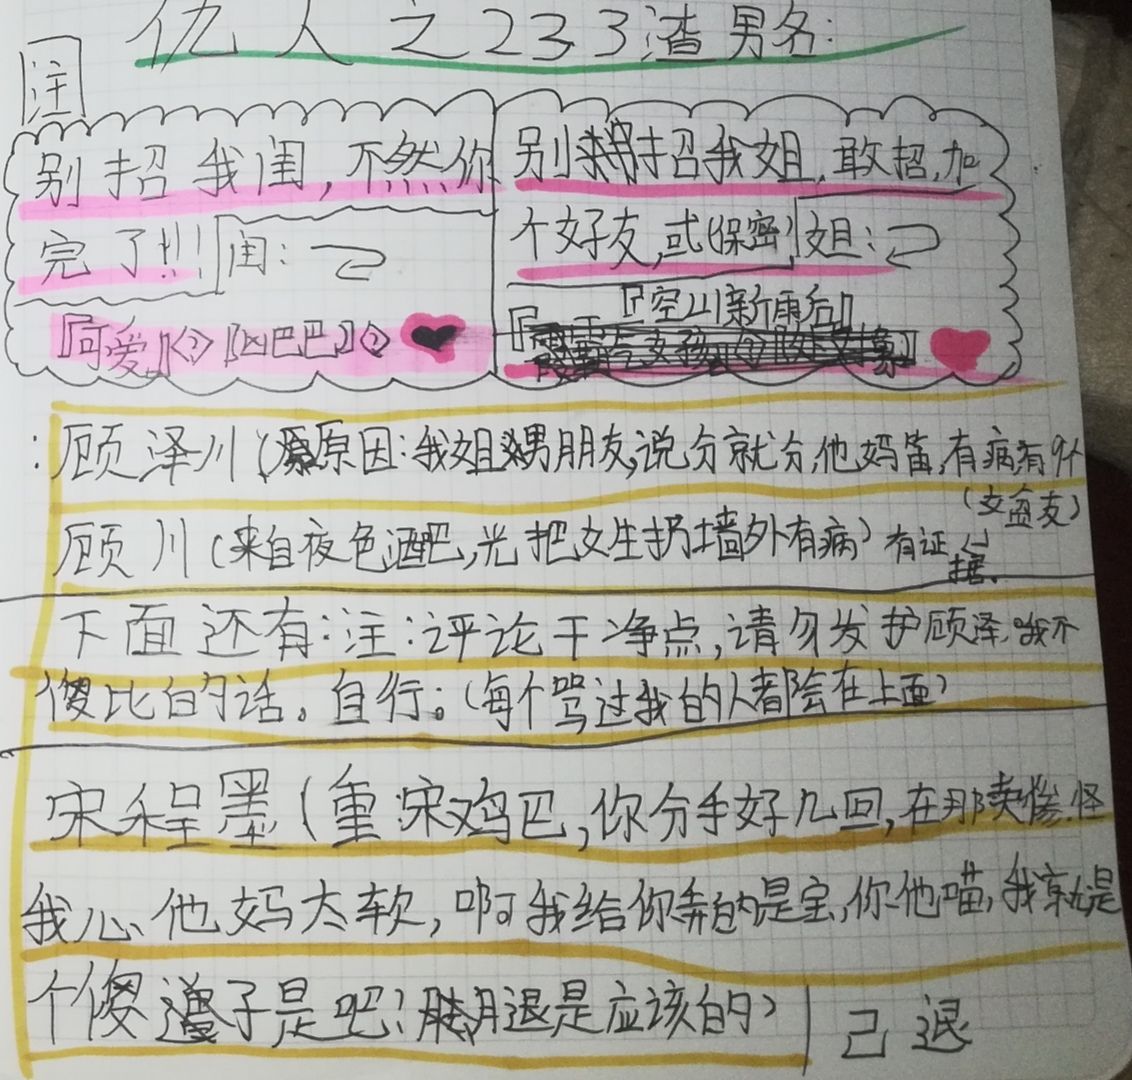 仇人之233渣男名:
注
别招我闺,不然你
完了!!! 闺:
『可爱』<?>『凶巴巴』<?>
别招我姐,敢招,加
个好友,或(保密) 姐:
『空山新雨后』
:顾泽川(原因:我姐男朋友,说分就分,他妈笛,有病
顾川(来自夜色酒吧,光把女生扔墙外有病)有证据。
下面还有:注:评论干净点,请勿发护顾泽,哦不
傻比的话。自行。(每个骂过我的人都会在上面)
宋程墨(重:宋鸡巴,你分手好几回,在那卖惨.怪
我心他妈太软,啊我给你弄的是宝,你他喵,我就是
个傻子是吧?退是应该的)
己退